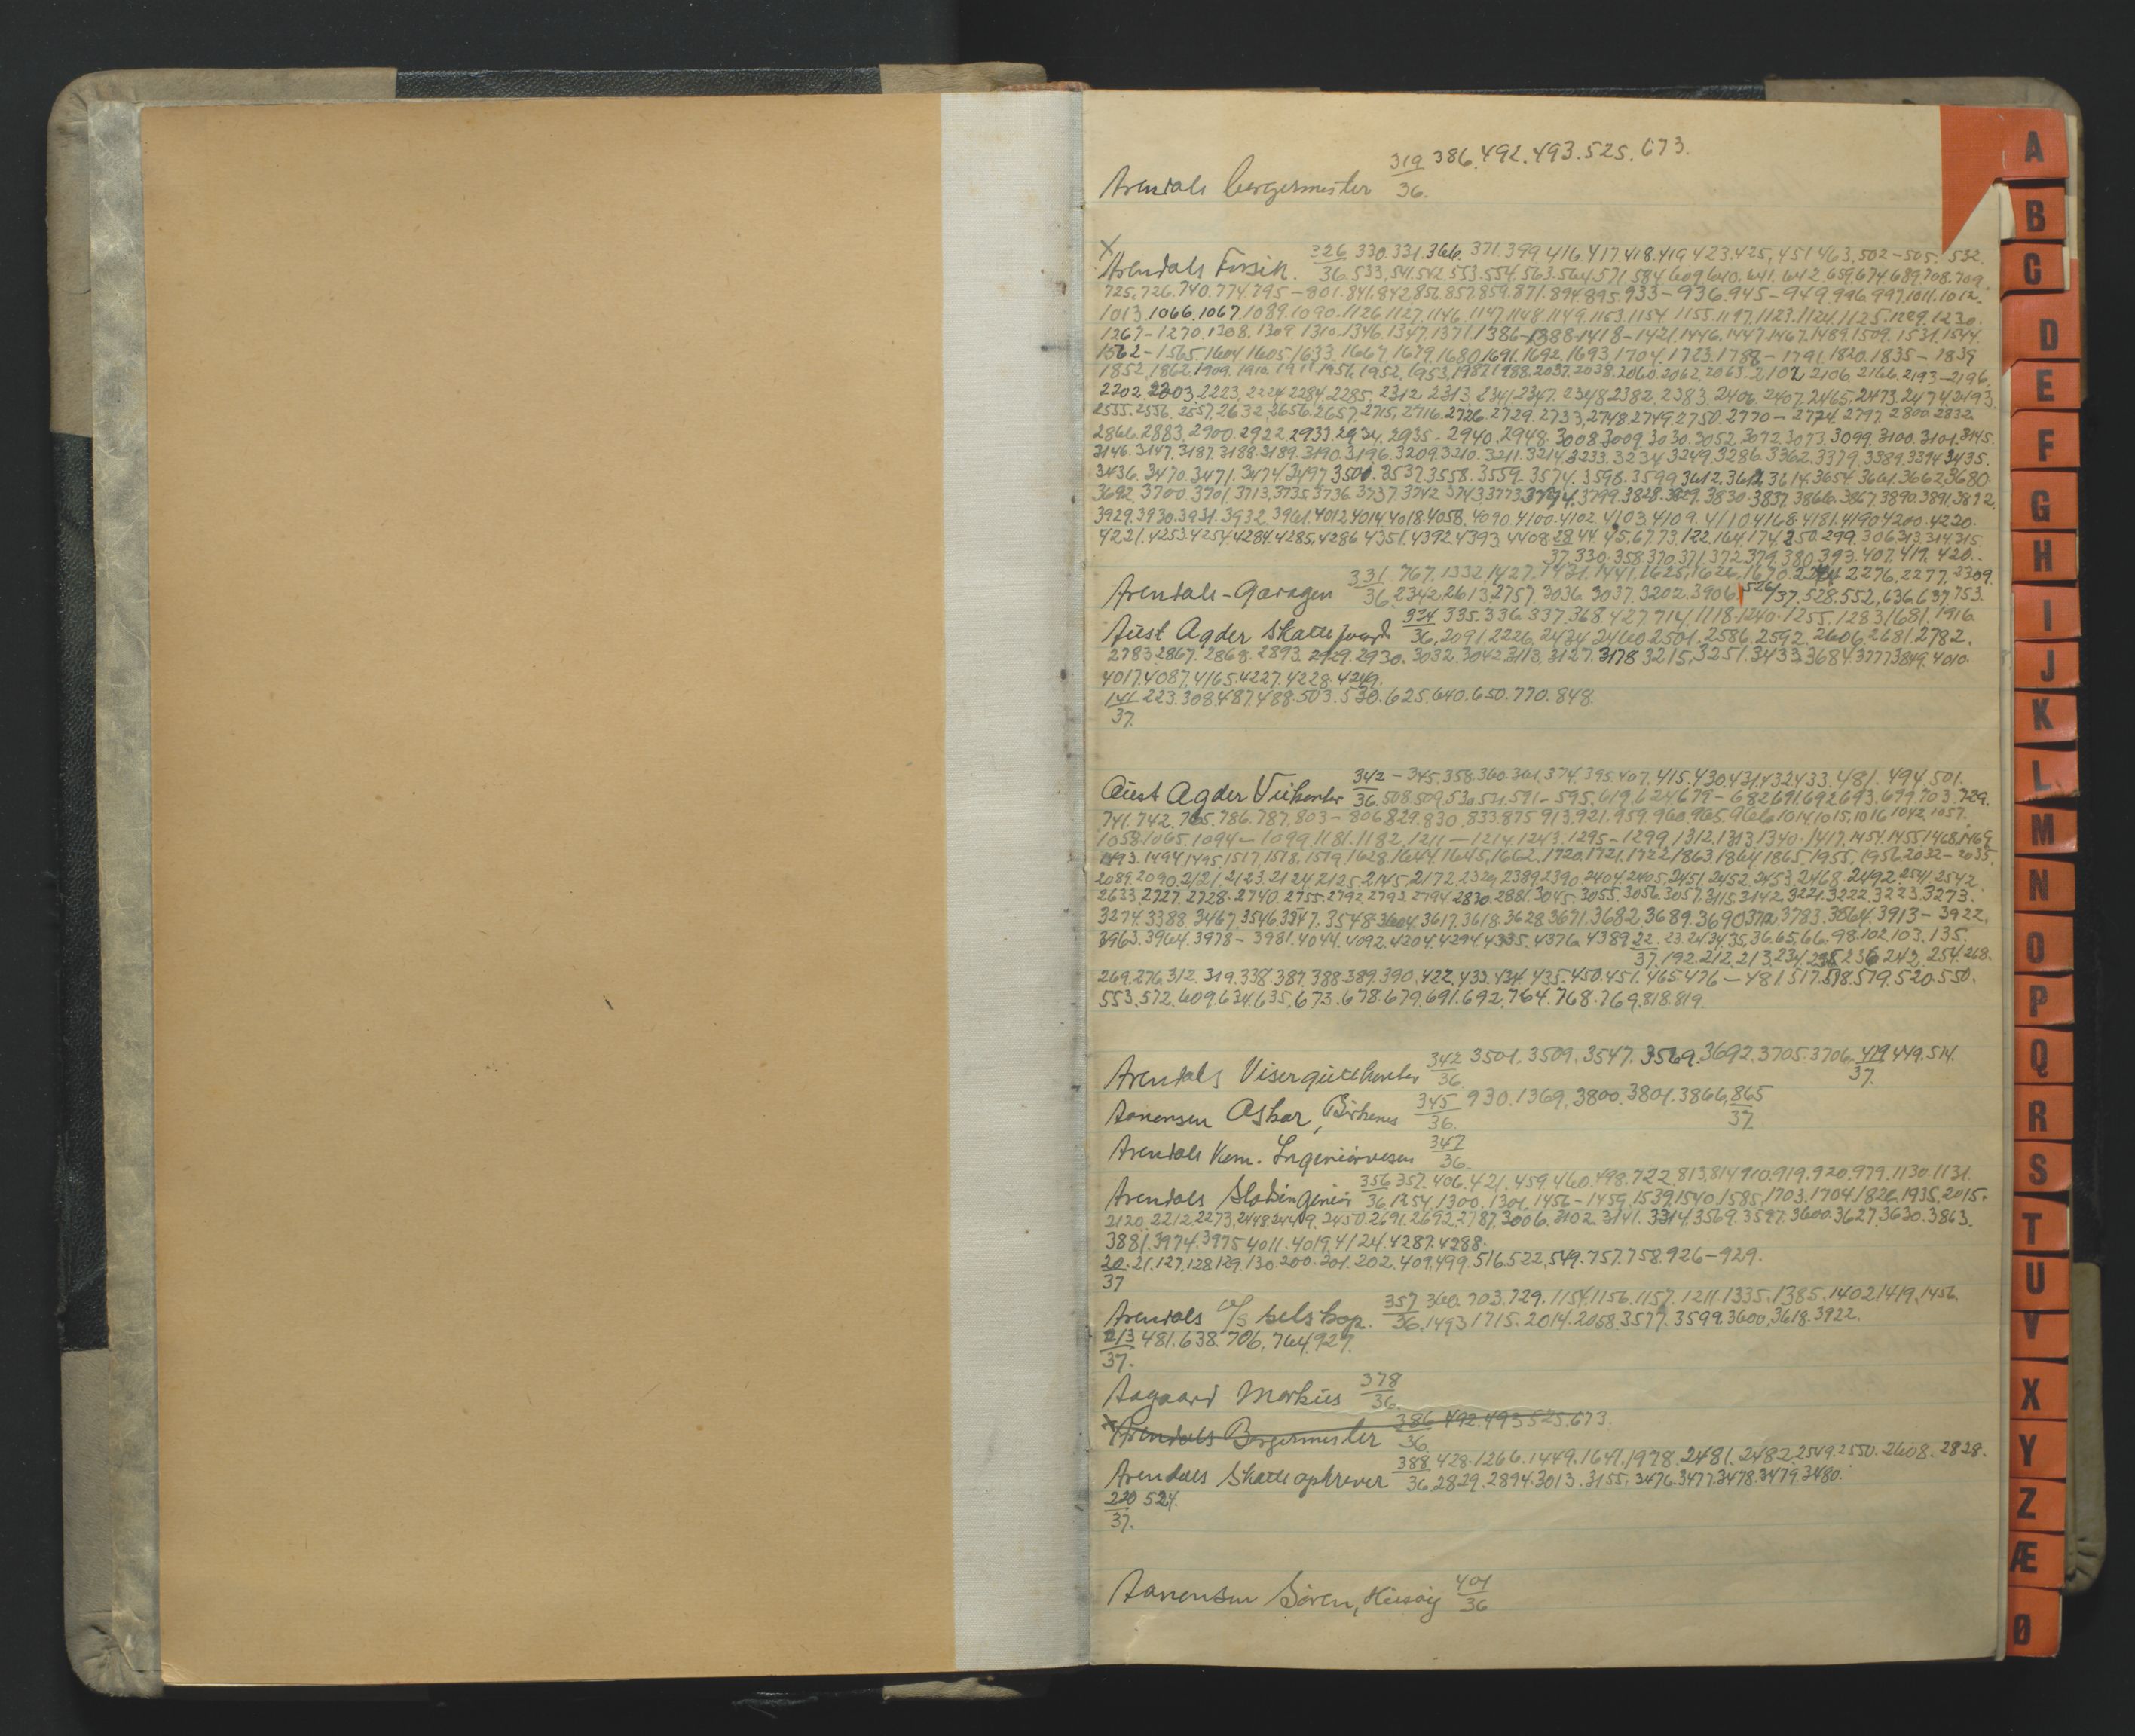 319 386.492.493.525.673.
Arendals borgermester 36.
x
Arendals Forsik. 326 330.331.366.371.399.416.417.418.419.423.425.451.463.502-505.532.
36.533.541.542.553.554.563.564.571.584.609.640.641.642.659.674.689.708.709.
725.726.740.774.795-801.841.842.856.857.859.871.894.895.933-936.945-949.996.997.1011.1012.
1013.1066.1067.1089.1090.1126.1127.1146.1147.1148.1149.1153.1154.1155.1197.1123.1124.1125.1229.1230.
1267-1270.1308.1309.1310.1346.1347.1371.1386-1388.1418-1421.1446.1447.1467.1489.1509.1531.1544.
1562-1565.1604.1605.1633.1667.1679.1680.1691.1692.1693.1704.1723.1788-1791.1820.1835-1839
1852.1862.1909.1910.1911.1951.1952.1953.1987.1988.2037.2038.2060.2062.2063.2102.2106.2166.2193-2196.
2202.2203.2223.2224.2284.2285.2312.2313.2341.2347.2348.2382.2383.2406.2407.2465.2473.2474.2493.
2555.2556.2557.2632.2656.2657.2715.2716.2726.2729.2733.2748.2749.2750.2770-2774.2797.2800.2832.
2866.2883.2900.2922.2933.2934.2935-2940.2948.3008.3009.3030.3052.3072.3073.3099.3100.3101.3145.
3146.3147.3187.3188.3189.3190.3196.3209.3210.3211.3214.3233.3234.3249.3286.3362.3379.3389.3394.3435.
3436.3470.3471.3474.3497.3501.3537.3558.3559.3574.3598.3599.3612.3613.3614.3654.3661.3662.3680.
3692.3700.3701.3713.3735.3736.3737.3742.3743.3773.3774.3799.3828.3829.3830.3857.3866.3867.3890.3891.3892.
3929.3930.3931.3932.3961.4012.4014.4018.4058.4090.4100.4102.4103.4109.4110.4168.4181.4190.4200.4220.
4221.4253.4254.4284.4285.4286.4351.4392.4393.4408 28 44.45.67.73.122.164.174.250.299.306.313.314.315.
37.330.358.370.371.372.379.380.393.407.419.420.
Arendals-Garagen 331 767.1332.1427.1431.1441.1625.1626.1670.2274.2276.2277.2309.
36.2342.2613.2757.3036.3037.3202.3906. 526/37.528.552.636.637.753.
Aust Agder Skattefogd 324 335.336.337.368.427.714.1118.1240.1255.1283.1681.1916.
36.2091.2226.2434.2460.2501.2586.2592.2606.2681.2782.
2783.2867.2868.2893.2929.2930.3032.3042.3113.3127.3178.3215.3251.3433.3684.3777.3849.4010.
4017.4087.4165.4227.4228.4249.
141 223.308.487.488.503.530.625.640.650.770.848.
37.
Aust Agder Veikontor 342-345.358.360.361.374.395.407.415.430.431.432.433.481.494.501.
36.508.509.530.531.591-595.619.624.679-682.691.692.693.699.703.729.
741.742.785.786.787.803-806.829.830.833.875.913.921.959.960.965.966.1014.1015.1016.1042.1057.
1058.1065.1094-1099.1181.1182.1211-1214.1243.1295-1299.1312.1313.1340.1417.1454.1455.1468.1469
1493.1494.1495.1517.1518.1519.1628.1644.1645.1662.1720.1721.1722.1863.1864.1865.1955.1956.2032-2035.
2089.2090.2121.2123.2124.2125.2145.2172.2329.2389.2390.2404.2405.2451.2452.2453.2468.2492.2541.2542.
2633.2727.2728.2740.2755.2792.2793.2794.2830.2881.3045.3055.3056.3057.3115.3142.3221.3222.3223.3273.
3274.3388.3467.3546.3547.3548.3604.3617.3618.3628.3671.3682.3689.3690.3712.3783.3864.3913-3922.
3963.3964.3978-3981.4044.4092.4204.4294.4335.4376.4389 22.23.24.34.35.36.65.66.98.102.103.135.
37.192.212.213.234.235.236.242.254.268.
269.276.312.319.338.387.388.389.390.422.433.434.435.450.451.465.476-481.517.518.519.520.550.
553.572.609.634.635.673.678.679.691.692.764.768.769.818.819.
Arendals Viserguttkontor 342 3501.3509.3547.3569.3692.3705.3706. 419 449.514.
36. 37.
Aanensen Oskar, Birkenes 345 930.1369.3800.3801.3866. 865
36. 37
Arendals Kom. Ingeniørvesen 347
36.
Arendals Stadsingeniør 356 357.406.421.459.460.498.722.813.814.910.919.920.979.1130.1131.
36.1254.1300.1301.1456-1459.1539.1540.1585.1703.1704.1826.1935.2015.
2120.2212.2273.2448.2449.2450.2691.2692.2787.3006.3102.3141.3314.3569.3597.3600.3627.3630.3863.
3881.3974.3975.4011.4019.4124.4287.4288.
20.21.127.128.129.130.200.201.202.409.499.516.522.549.757.758.926-929.
37
Arendals A/S selskap. 357 360.703.729.1154.1156.1157.1211.1335.1385.1402.1419.1456.
36.1493.1715.2014.2058.3577.3599.3600.3618.3922.
213 481.638.706.764.927.
37.
Aagaard Markus 378
36.
x Arendals Borgermester 386 492.493.525.673.
36.
Arendals Skatteopkrever 388 428.1266.1449.1641.1978.2481.2482.2549.2550.2608.2828.
36.2829.2894.3013.3155.3476.3477.3478.3479.3480.
220 524.
37.
Aanensen Søren, Hisøy 401
36
A
B
C
D
E
F
G
H
I
J
K
L
M
N
O
P
Q
R
S
T
U
V
X
Y
Z
Æ
Ø